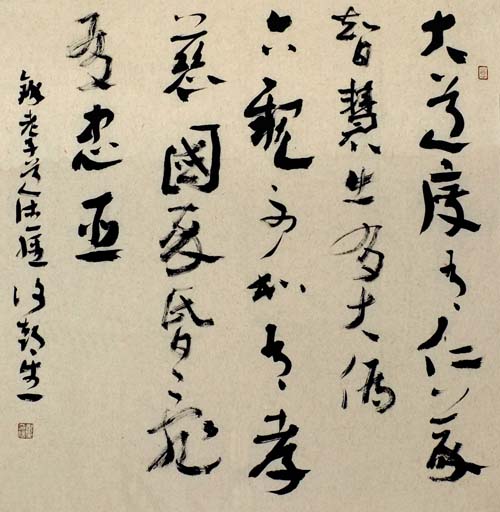 大道廢有仁義
智慧出有大偽
六親不和有孝
慈國家昏亂
有忠臣
錄老子道